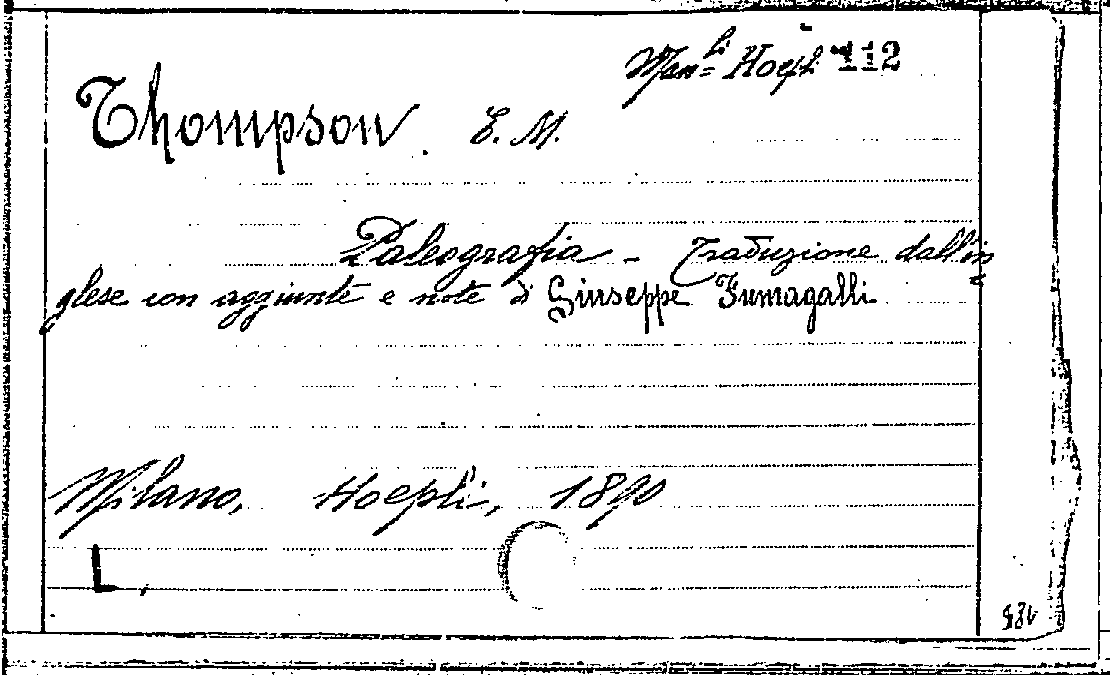 Man.li Hoepli 112
Thompson. E. M.
Paleografia - Traduzione dall'in
glese con aggiunte e note di Giuseppe Fumagalli
Milano, Hoepli, 1890
L.